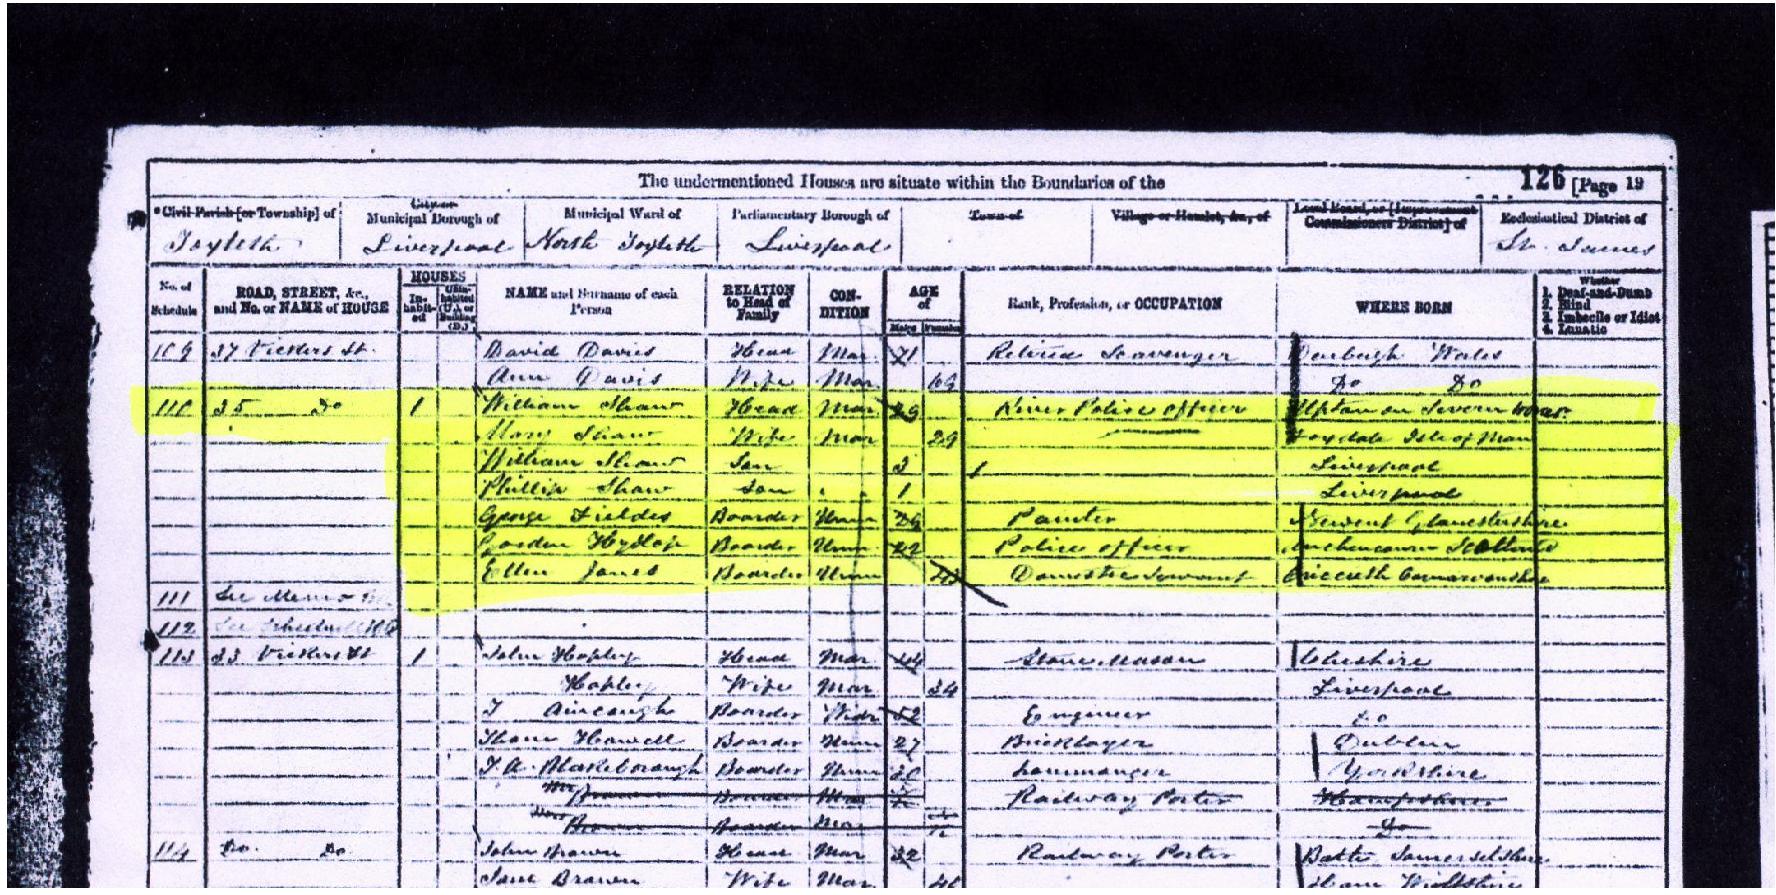 The undermentioned Houses are situate within the Boundaries of the
126 [Page 19
Civil Parish [or Township] of City or Municipal Borough of Municipal Ward of Parliamentary Borough of Town of Village or Hamlet, &c., of Local Board, or [Improvement Commissioners District] of Ecclesiastical District of
Toxteth Liverpool North Toxteth Liverpool St. James
No. of Schedule ROAD, STREET, &c., and No. or NAME of HOUSE HOUSES Inhabited Uninhabited (U.) or Building (B.) NAME and Surname of each Person RELATION to Head of Family CONDITION AGE of Males Females Rank, Profession, or OCCUPATION WHERE BORN Whether 1. Deaf-and-Dumb 2. Blind 3. Imbecile or Idiot 4. Lunatic
109 37 Vickers St. David Davies Head Mar 71 Retired Scavenger Denbigh Wales
Ann Davis Wife Mar 69 Do Do
110 35 Do 1 William Shaw Head Mar 29 River Police officer Upton on Severn
Mary Shaw Wife Mar 29 Foxdale Isle of Man
William Shaw Son 3 Liverpool
Phillip Shaw Son 1 Liverpool
George Fieldes Boarder Unm Painter Newent Gloucestershire
Hyslop Boarder Unm Police officer Scotland
Ellen Jones Boarder Unm Domestic Servant Criccieth Carnarvonshire
111 See
112 See Schedule
113 33 Vickers St 1 John Hopley Head Mar 44 Stone Mason Cheshire
Hopley Wife Mar 34 Liverpool
T Boarder Widr 52 Engineer Do
Howell Boarder Unm 27 Bricklayer Dublin
T. A. Blakeborough Boarder Unm 20 Yorkshire
Brown Boarder Mar Railway Porter Hampshire
Brown Boarder Mar Do
114 Do Do John Brown Head Mar 32 Railway Porter Somersetshire
Jane Brown Wife Mar 40 Wiltshire